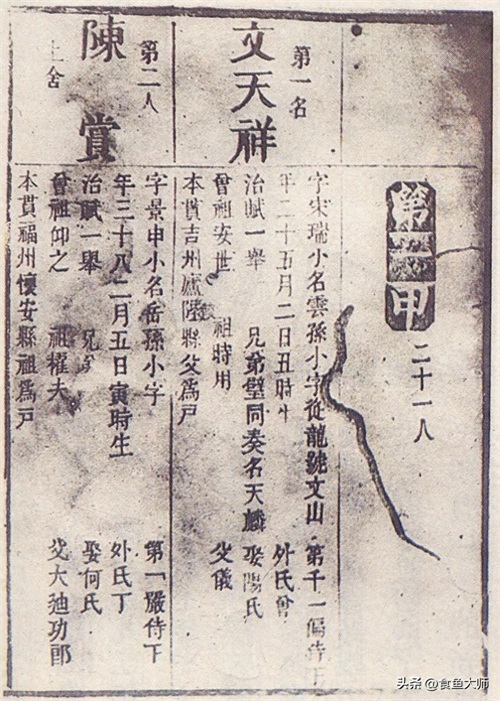 第一甲 二十一人
第一名
文天祥
字宋瑞小名雲孫小字從龍號文山 第千一偏侍下
年二十五月二日丑時生 外氏曾
治賦一舉 兄弟璧同奏名天麟 娶陽氏
曾祖安世 祖時用 父儀
本貫吉州廬陵縣父爲戶
第二人
陳賞
上舍
字景申小名岳孫小字 第一嚴侍下
年三十八二月五日寅時生 外氏丁
治賦一舉 兄 娶何氏
曾祖仰之 祖權夫 父大廸功郎
本貫福州懷安縣祖爲戶
头条@食鱼大师